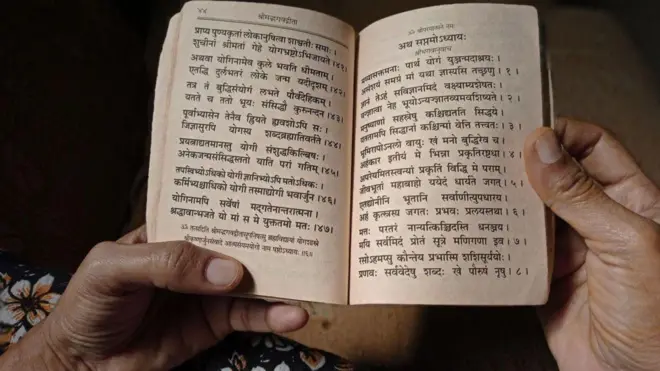 ४४ श्रीमद्भगवद्गीता
प्राप्य पुण्यकृतां लोकानुषित्वा शाश्वतीः समाः ।
शुचीनां श्रीमतां गेहे योगभ्रष्टोऽभिजायते ।४१।
अथवा योगिनामेव कुले भवति धीमताम् ।
एतद्धि दुर्लभतरं लोके जन्म यदीदृशम् ।४२।
तत्र तं बुद्धिसंयोगं लभते पौर्वदेहिकम् ।
यतते च ततो भूयः संसिद्धौ कुरुनन्दन ।४३।
पूर्वाभ्यासेन तेनैव ह्रियते ह्यवशोऽपि सः ।
जिज्ञासुरपि योगस्य शब्दब्रह्मातिवर्तते ।४४।
प्रयत्नाद्यतमानस्तु योगी संशुद्धकिल्बिषः ।
अनेकजन्मसंसिद्धस्ततो याति परां गतिम् ।४५।
तपस्विभ्योऽधिको योगी ज्ञानिभ्योऽपि मतोऽधिकः ।
कर्मिभ्यश्चाधिको योगी तस्माद्योगी भवार्जुन ।४६।
योगिनामपि सर्वेषां मद्गतेनान्तरात्मना ।
श्रद्धावान्भजते यो मां स मे युक्ततमो मतः ।४७।
ॐ तत्सदिति श्रीमद्भगवद्गीतासूपनिषत्सु ब्रह्मविद्यायां योगशास्त्रे
श्रीकृष्णार्जुनसंवादे आत्मसंयमयोगो नाम षष्ठोऽध्यायः ॥६॥
ॐ श्रीपरमात्मने नमः
अथ सप्तमोऽध्यायः
श्रीभगवानुवाच
मय्यासक्तमनाः पार्थ योगं युञ्जन्मदाश्रयः ।
असंशयं समग्रं मां यथा ज्ञास्यसि तच्छृणु । १ ।
ज्ञानं तेऽहं सविज्ञानमिदं वक्ष्याम्यशेषतः ।
यज्ज्ञात्वा नेह भूयोऽन्यज्ज्ञातव्यमवशिष्यते । २ ।
मनुष्याणां सहस्रेषु कश्चिद्यतति सिद्धये ।
यततामपि सिद्धानां कश्चिन्मां वेत्ति तत्त्वतः । ३ ।
भूमिरापोऽनलो वायुः खं मनो बुद्धिरेव च ।
अहंकार इतीयं मे भिन्ना प्रकृतिरष्टधा । ४ ।
अपरेयमितस्त्वन्यां प्रकृतिं विद्धि मे पराम् ।
जीवभूतां महाबाहो ययेदं धार्यते जगत् । ५ ।
एतद्योनीनि भूतानि सर्वाणीत्युपधारय ।
अहं कृत्स्नस्य जगतः प्रभवः प्रलयस्तथा । ६ ।
मत्तः परतरं नान्यत्किञ्चिदस्ति धनञ्जय ।
मयि सर्वमिदं प्रोतं सूत्रे मणिगणा इव । ७ ।
रसोऽहमप्सु कौन्तेय प्रभास्मि शशिसूर्ययोः ।
प्रणवः सर्ववेदेषु शब्दः खे पौरुषं नृषु । ८ ।